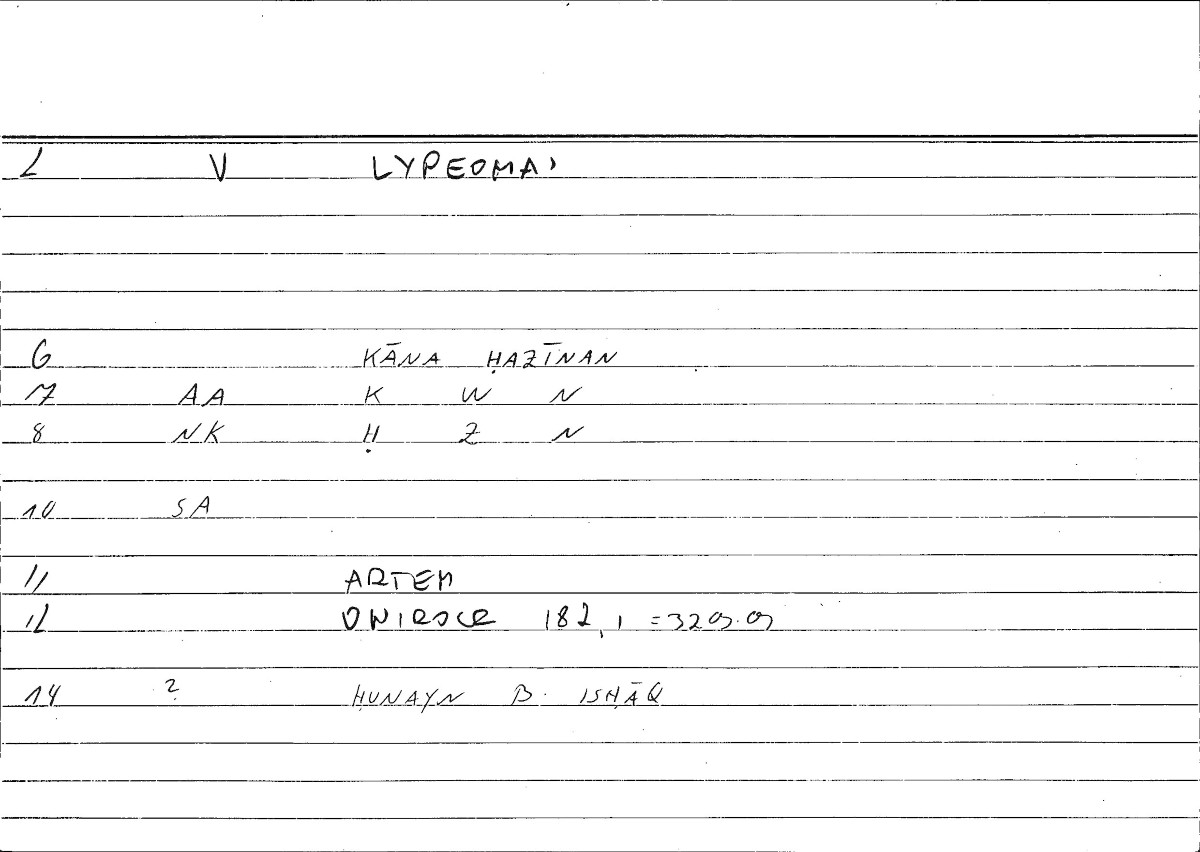 2 V LYPEOMAI
6 KĀNA ḤAZĪNAN
7 AA K W N
8 NK Ḥ Z N
10 SA
11 ARTEM
12 ONIROCR 182,1 = 329.9
14 ? ḤUNAYN B. ISḤĀQ